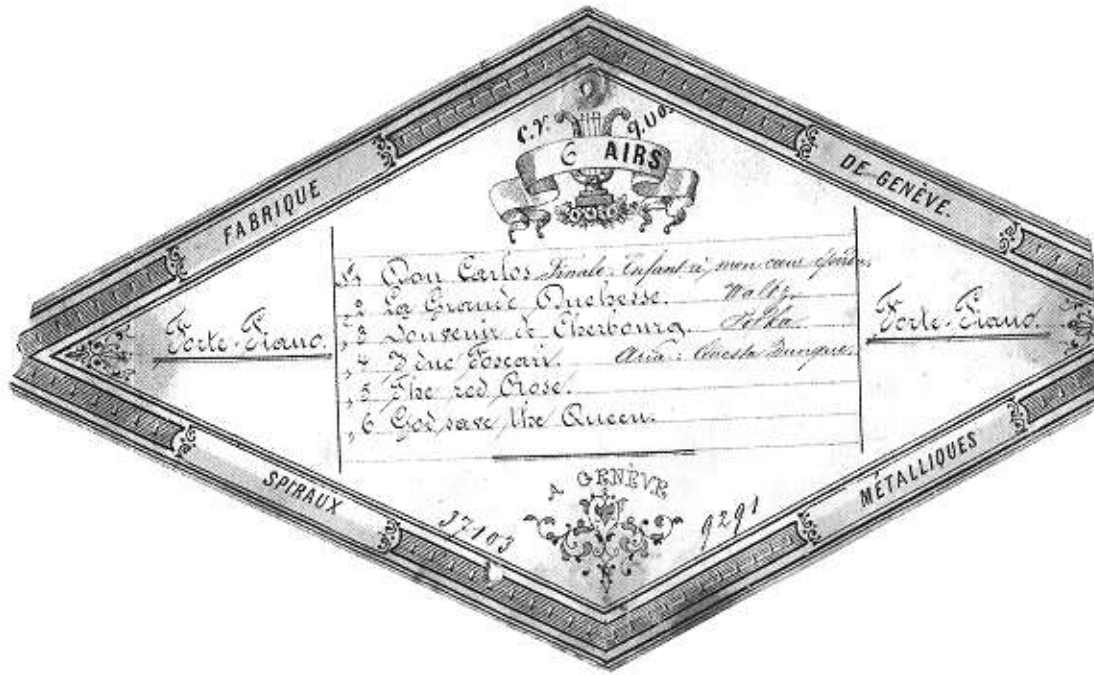 C.V.
6 AIRS
FABRIQUE
DE GENÈVE.
Forte-Piano.
Forte-Piano.
1 Don Carlos Finale. Enfant à mon cœur
„ 2 La Grande Duchesse. Waltz.
„ 3 Souvenir de Cherbourg. Polka.
„ 4 I due Foscari. Aria: Questa Dunque.
„ 5 The red Rose.
„ 6 God save the Queen.
A GENÈVE
SPIRAUX
MÉTALLIQUES
37103
9291